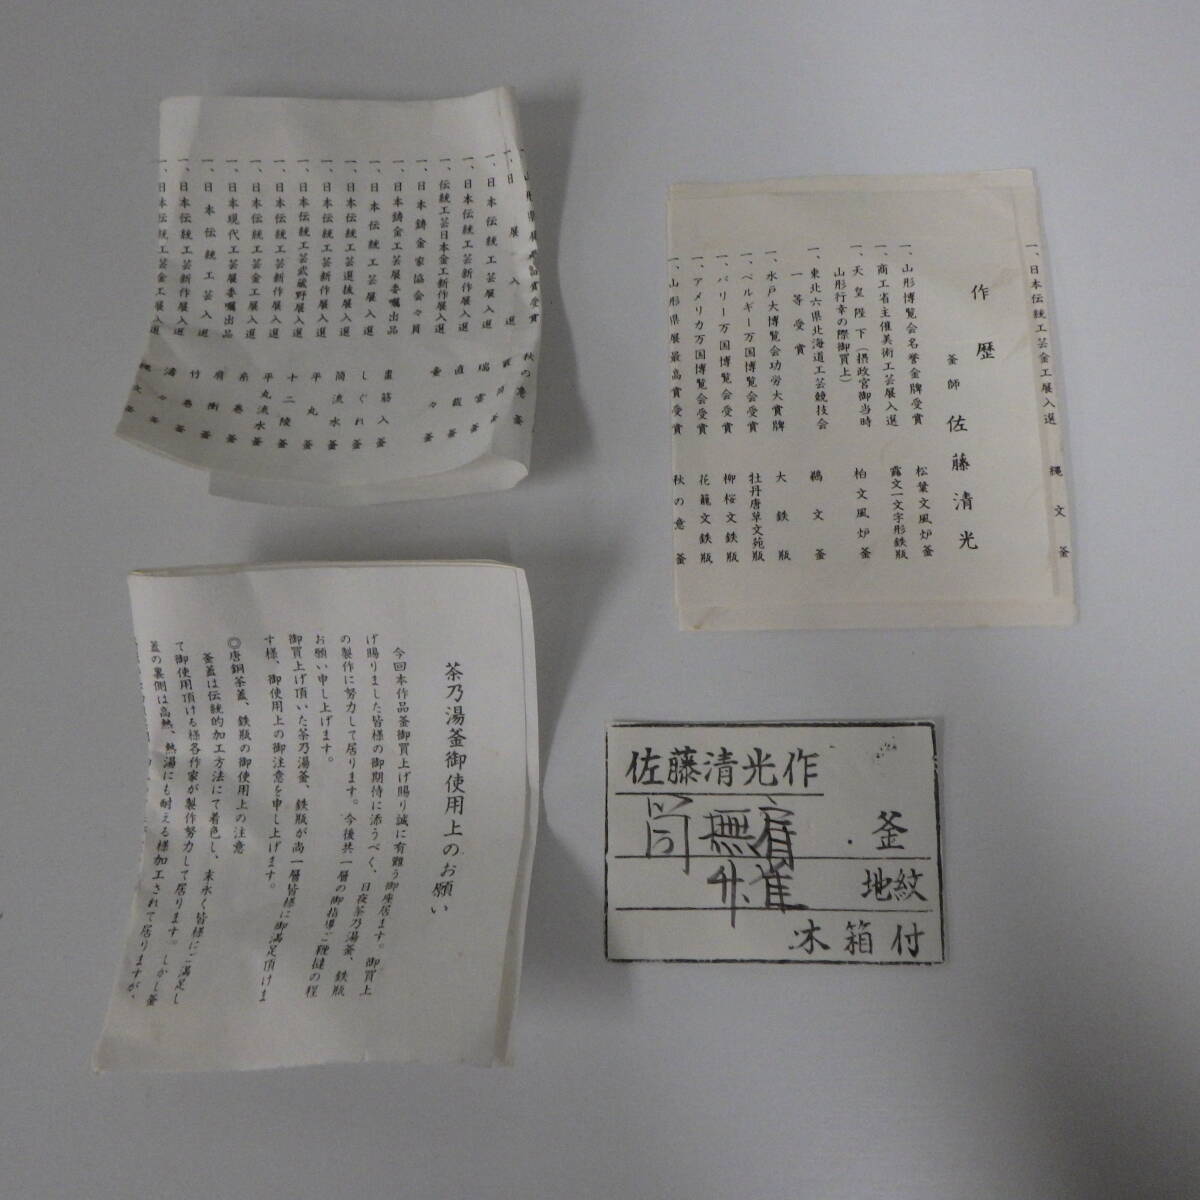 一、日展入選
一、日本伝統工芸展入選
一、日本伝統工芸新作展入選
一、伝統工芸日本金工新作展入選
一、日本鋳金家協会々員
一、日本鋳金工展委嘱出品
一、日本伝統工芸展入選 重筋入釜
一、日本伝統工芸選抜展入選 しぐれ釜
一、日本伝統工芸新作展入選 筒流水釜
一、日本伝統工芸武蔵野展入選 平丸釜
一、日本伝統工芸新作展入選 十二陵釜
一、日本伝統工芸金工展入選 平丸流水釜
一、日本現代工芸展委嘱出品 糸巻釜
一、日本伝統工芸入選 肩衝釜
一、日本伝統工芸新作展入選 竹巻釜
一、日本伝統工芸金工展入選
作歴
釜師 佐藤清光
一、山形博覧会名誉金牌受賞 松葉文風炉釜
一、商工省主催美術工芸展入選 露文一文字形鉄瓶
一、天皇陛下(摂政宮御当時
山形行幸の際御買上) 柏文風炉釜
一、東北六県北海道工芸競技会
一等受賞 鵜文釜
一、水戸大博覧会功労大賞牌 大鉄瓶
一、ベルギー万国博覧会受賞 牡丹唐草文苑瓶
一、パリー万国博覧会受賞 柳桜文鉄瓶
一、アメリカ万国博覧会受賞 花籠文鉄瓶
一、山形県展最高賞受賞 秋の意釜
一、日本伝統工芸金工展入選 縄文釜
茶乃湯釜御使用上のお願い
今回本作品釜御買上げ賜り誠に有難う御座居ます。御買上
げ賜りました皆様の御期待に添うべく、日夜茶乃湯釜、鉄瓶
の製作に努力して居ります。今後共一層の御指導ご鞭撻の程
お願い申し上げます。
御買上げ頂いた茶乃湯釜、鉄瓶が尚一層皆様に御満足頂けま
す様、御使用上の御注意を申し上げます。
◎唐銅茶蓋、鉄瓶の御使用上の注意
釜蓋は伝統的加工方法にて着色し、末永く皆様にご満足し
て御使用頂ける様各作家が製作努力して居ります。しかし釜
蓋の裏側は高熱、熱湯にも耐える様加工されて居りますが、
佐藤清光作
筒 無 釜
地紋
木箱付